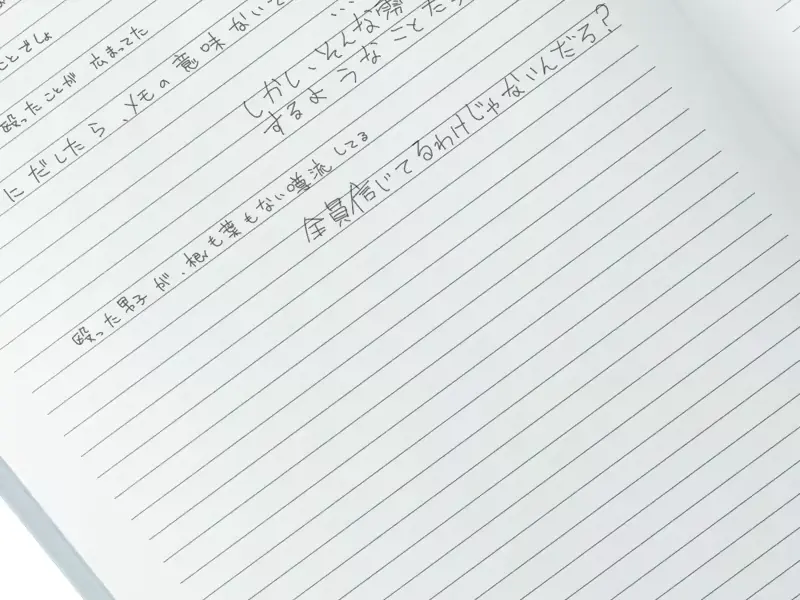 ことでしょ
殴ったことが 広まってた
にだしたら、メモの意味ないで
…
しかし、そんな
するようなことたら
殴った男子が、根も葉もない噂流してる
全員信じてるわけじゃないんだろ?